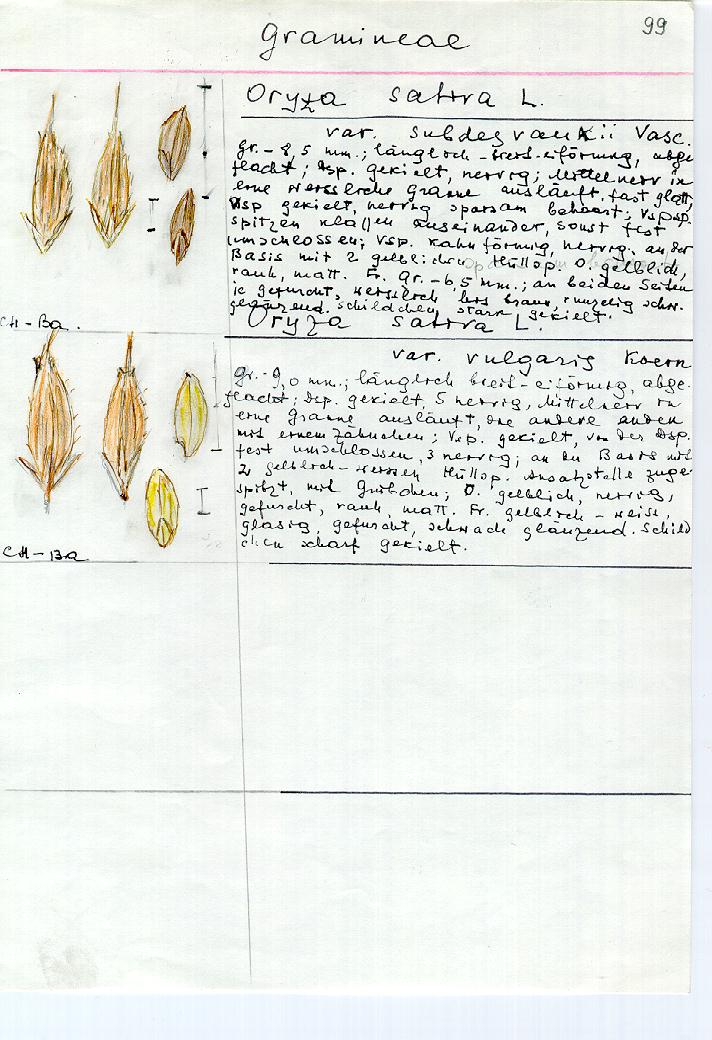 99
Gramineae
Oryza sativa L.
var. subdesvauxii Vasc.
Gr. - 8,5 mm.; länglich - breit-eiförmig, abge
flacht; Dsp. gekielt, nervig; Mittelnerv in
eine weissliche Granne ausläuft, fast glatt,
Vsp gekielt, nervig sparsam behaart; Vspsp.
spitzen klaffen auseinander, sonst fest
umschlossen; Vsp. kahnförmig, nervig. an der
Basis mit 2 gelblichen Hüllsp. O. gelblich,
rauh, matt. Fr. Gr. - 6,5 mm.; an beiden Seiten
je gefurcht, weisslich bis braun, runzelig schw.
glänzend. Schildchen stark gekielt.
CH-Ba.
Oryza sativa L.
var. vulgaris Koern
Gr. - 9,0 mm.; länglich breit-eiförmig, abge-
flacht; Dsp. gekielt, 5 nervig, Mittelnerv in
eine Granne ausläuft, die andere enden
mit einem Zähnchen; Vsp. gekielt, von der Dsp.
fest umschlossen, 3 nervig, an der Basis mit
2 gelblich-weissen Hüllsp. Ansatzstelle zuge-
spitzt, mit Grübchen; O. gelblich, nervig,
gefurcht, rauh, matt. Fr. gelblich - weiss,
glasig, gefurcht, schwach glänzend. Schild
chen scharf gekielt.
CH-Ba